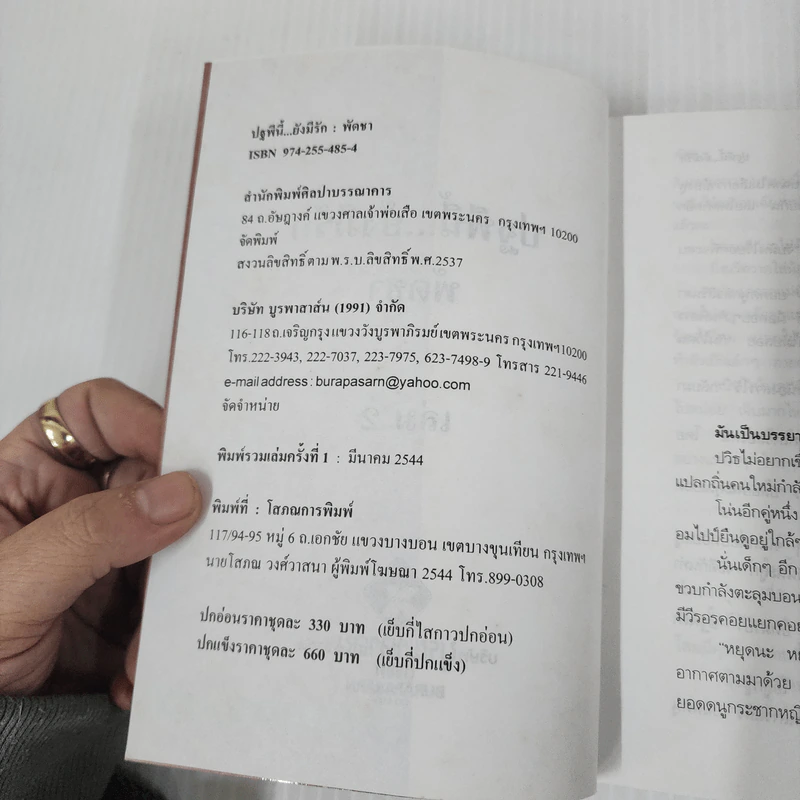 ปฐพีนี้...ยังมีรัก : พัดชา
ISBN 974-255-485-4
สำนักพิมพ์ศิลปาบรรณาคาร
84 ถ.อัษฎางค์ แขวงศาลเจ้าพ่อเสือ เขตพระนคร กรุงเทพฯ 10200
จัดพิมพ์
สงวนลิขสิทธิ์ ตาม พ.ร.บ.ลิขสิทธิ์ พ.ศ.2537
บริษัท บูรพาสาส์น (1991) จำกัด
116-118 ถ.เจริญกรุง แขวงวังบูรพาภิรมย์ เขตพระนคร กรุงเทพฯ 10200
โทร.222-3943, 222-7037, 223-7975, 623-7498-9 โทรสาร 221-9446
e-mail address : burapasarn@yahoo.com
จัดจำหน่าย
พิมพ์รวมเล่มครั้งที่ 1 : มีนาคม 2544
พิมพ์ที่ : โสภณการพิมพ์
117/94-95 หมู่ 6 ถ.เอกชัย แขวงบางบอน เขตบางขุนเทียน กรุงเทพฯ
นายโสภณ วงศ์วาสนา ผู้พิมพ์โฆษณา 2544 โทร.899-0308
ปกอ่อนราคาชุดละ 330 บาท (เย็บกี่ไสกาวปกอ่อน)
ปกแข็งราคาชุดละ 660 บาท (เย็บกี่ปกแข็ง)
มันเป็นบรรยา
ปวิธไม่อยากเชื
แปลกถิ่นคนใหม่กำลั
โน่นอีกคู่หนึ่ง
อมไปป์ยืนดูอยู่ใกล้ๆ
นั่นเด็กๆ อีก
ขวบกำลังตะลุมบอน
มีวีรอรคอยแยกคอย
"หยุดนะ ห
อากาศตามมาด้วย
ยอดดนูกระชากหญิ